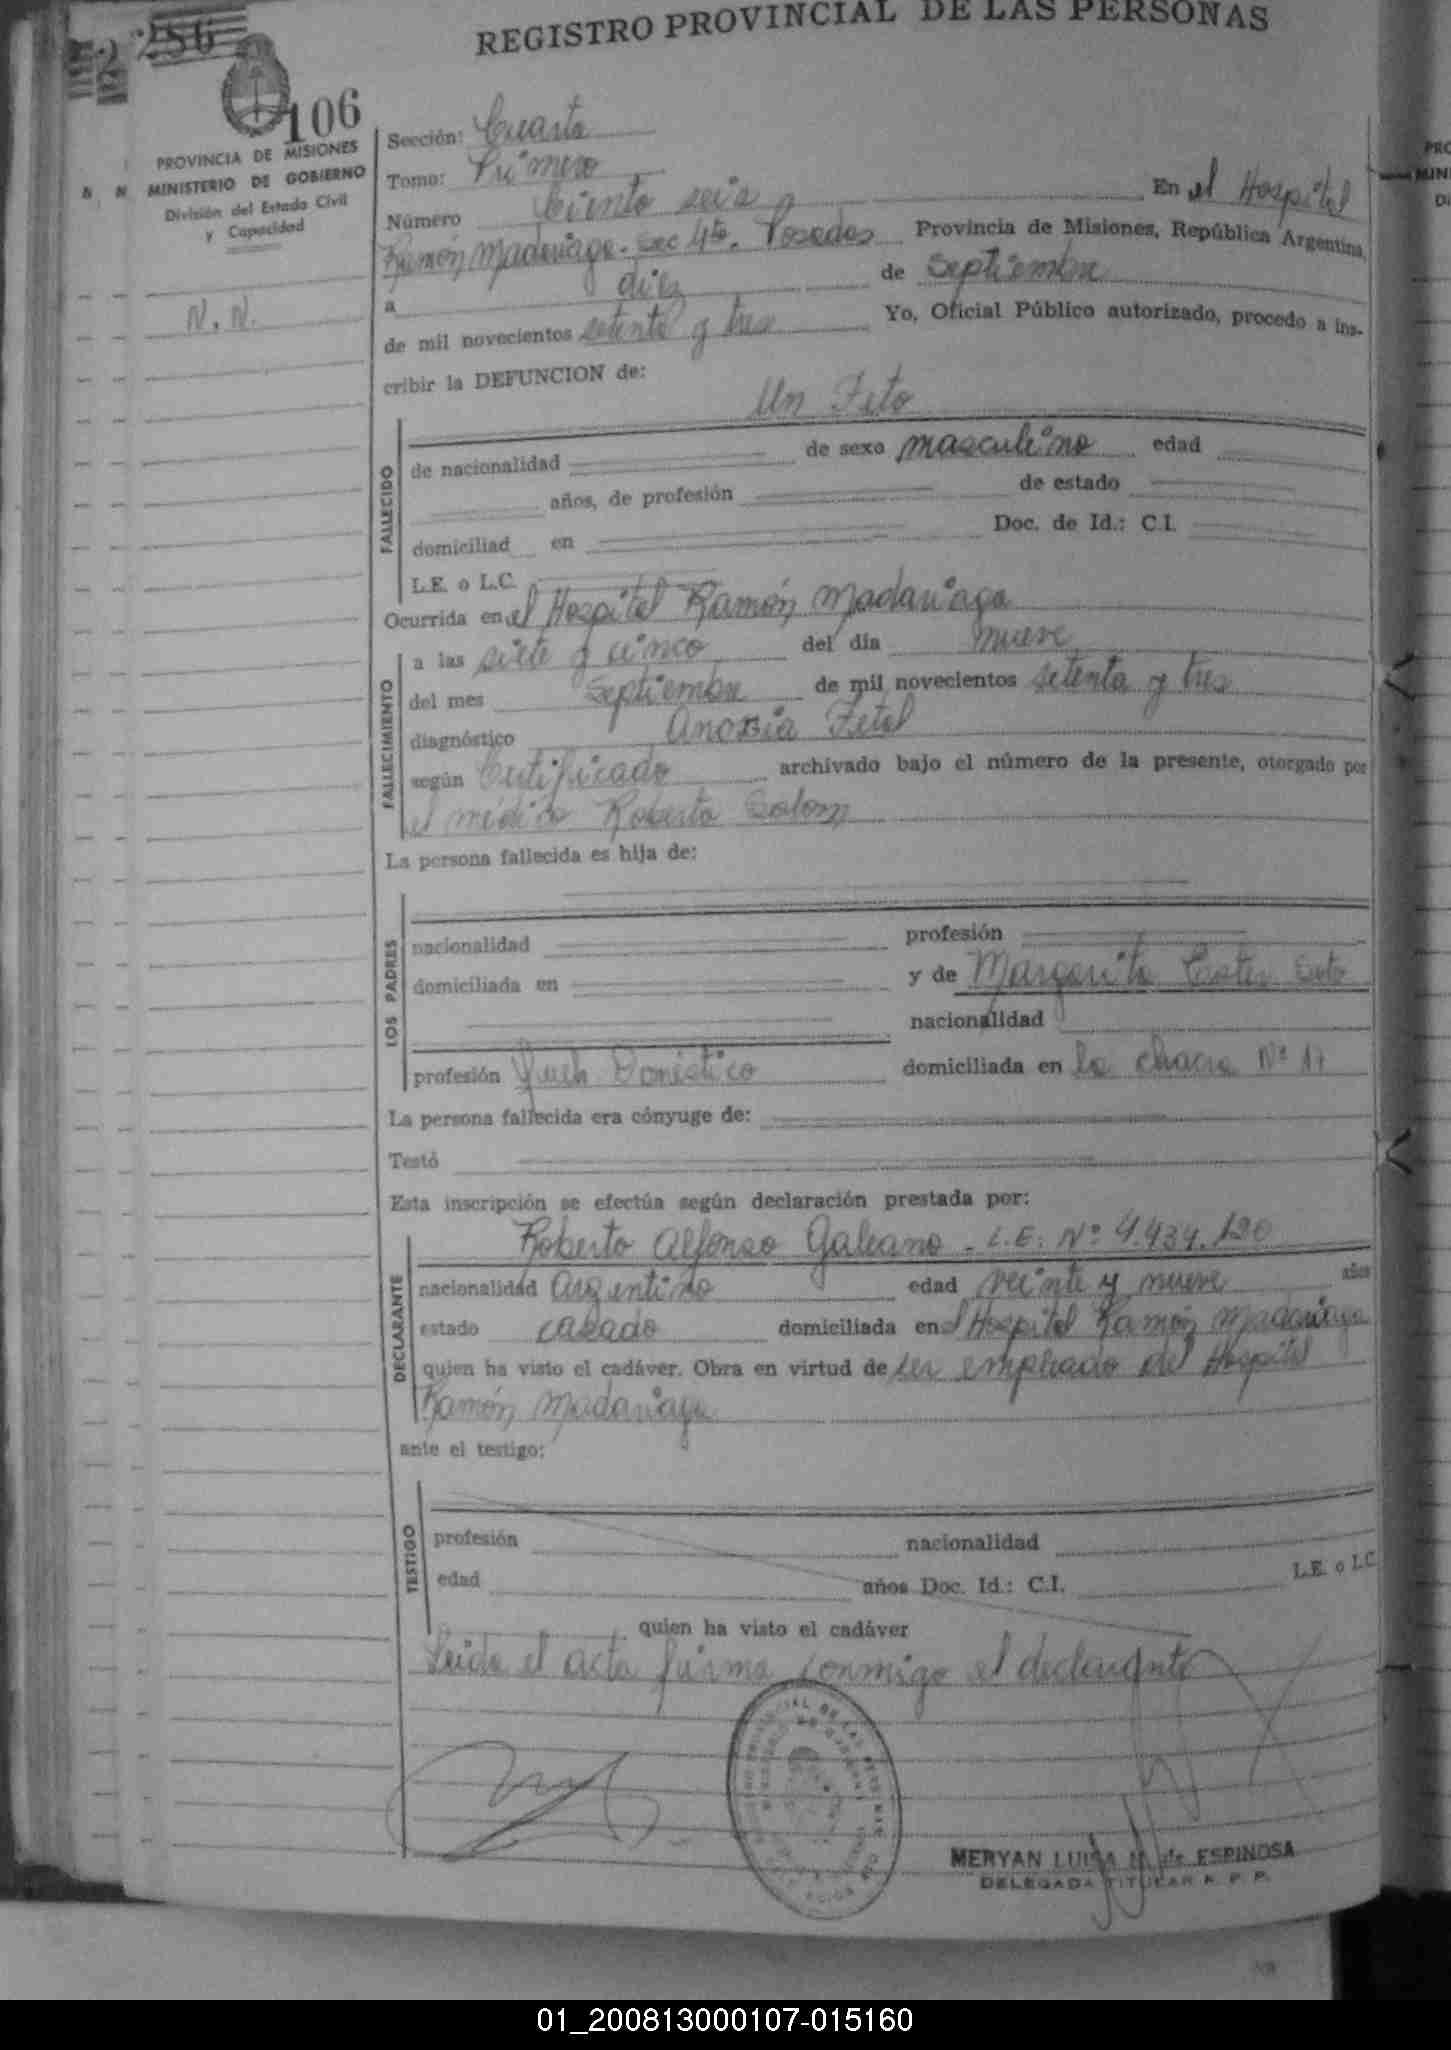 REGISTRO PROVINCIAL DE LAS PERSONAS
286
106
PROVINCIA DE MISIONES
MINISTERIO DE GOBIERNO
División del Estado Civil
y Capacidad
N. N.
Sección: Cuarta
Tomo: Primero
Número Ciento seis En el Hospital
Ramón Madariaga - Sec 4ta. Posadas Provincia de Misiones, República Argentina,
a diez de Septiembre
de mil novecientos setenta y tres Yo, Oficial Público autorizado, procedo a ins-
cribir la DEFUNCION de:
Un Feto
FALLECIDO
de nacionalidad de sexo masculino edad
años, de profesión de estado
domiciliad en Doc. de Id.: C.I.
L.E. o L.C.
Ocurrida en el Hospital Ramón Madariaga
FALLECIMIENTO
a las siete y cinco del día nueve
del mes Septiembre de mil novecientos setenta y tres
diagnóstico Anoxia Fetal
según Certificado archivado bajo el número de la presente, otorgado por
el médico Roberto
La persona fallecida es hija de:
LOS PADRES
nacionalidad profesión
domiciliada en y de Margarita
nacionalidad
profesión Queh. Doméstico domiciliada en la chacra Nº 17
La persona fallecida era cónyuge de:
Testó
Esta inscripción se efectúa según declaración prestada por:
Roberto Alfonso Galeano - L.E. Nº 4.434.120
DECLARANTE
nacionalidad Argentino edad veinte y nueve años
estado casado domiciliada en el Hospital Ramón Madariaga
quien ha visto el cadáver. Obra en virtud de ser empleado del Hospital
Ramón Madariaga
ante el testigo:
TESTIGO
profesión nacionalidad
edad años Doc. Id.: C.I. L.E. o L.C.
quien ha visto el cadáver
Leida el acta firma conmigo el declarante
MERYAN LUISA M. de ESPINOSA
DELEGADA TITULAR R. P. P.
01_200813000107-015160